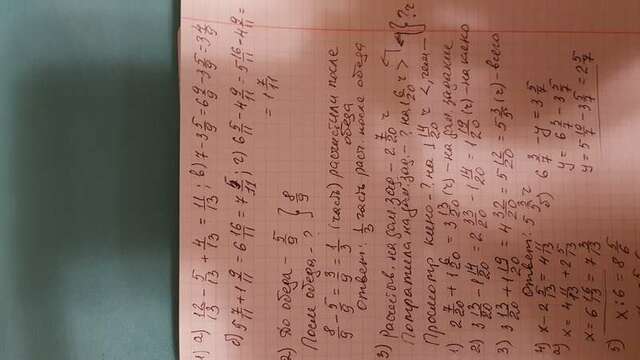 1) а) 12/13 - 5/13 + 4/13 = 11/13; в) 7-3 5/9=6 9/9-3 5/9=3 4/9
б) 5 7/11+1 9/11=6 16/11=7 5/11; г) 6 5/11-4 9/11=5 16/11-4 9/11=
=1 7/11
2) До обеда - 5/9 } 8/9
После обеда - ?
8/9 - 5/9 = 3/9 = 1/3 (часть) расчистили после
обеда
Ответ: 1/3 часть расч. после обеда
3) Рассчитыв. на дом. зад - 2 7/20 ч
Потратила на дом. зад. - ? на 1 6/20 ч > } ? ч
Просмотр кино - ? на 1 14/20 ч <, чем
1) 2 7/20 + 1 6/20 = 3 13/20 (ч) - на дом. задание
2) 3 13/20 - 1 14/20 = 2 33/20 - 1 14/20 = 1 19/20 (ч) - на кино
3) 3 13/20 + 1 19/20 = 4 32/20 = 5 12/20 = 5 3/5 (ч) - всего
Ответ: 5 3/5 ч
4) а) x - 2 5/13 = 4 11/13 б) 6 3/7 - y = 3 5/7
x = 4 11/13 + 2 5/13 y = 6 3/7 - 3 5/7
x = 6 16/13 = 7 3/13 y = 5 10/7 - 3 5/7 = 2 5/7
5) x : 6 = 8 5/6